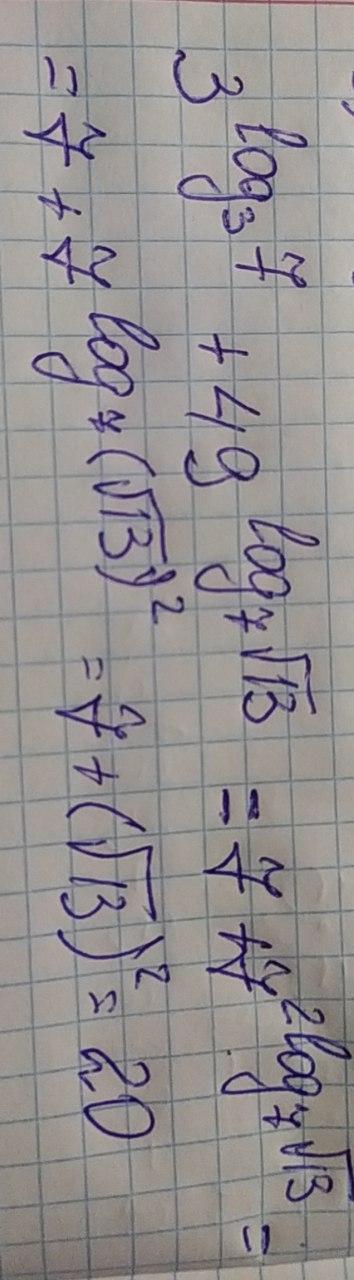 3^{log_3 7} + 49^{log_7 √13} = 7 + 7^{2log_7 √13} =
= 7 + 7^{log_7 (√13)^2} = 7 + (√13)^2 = 20